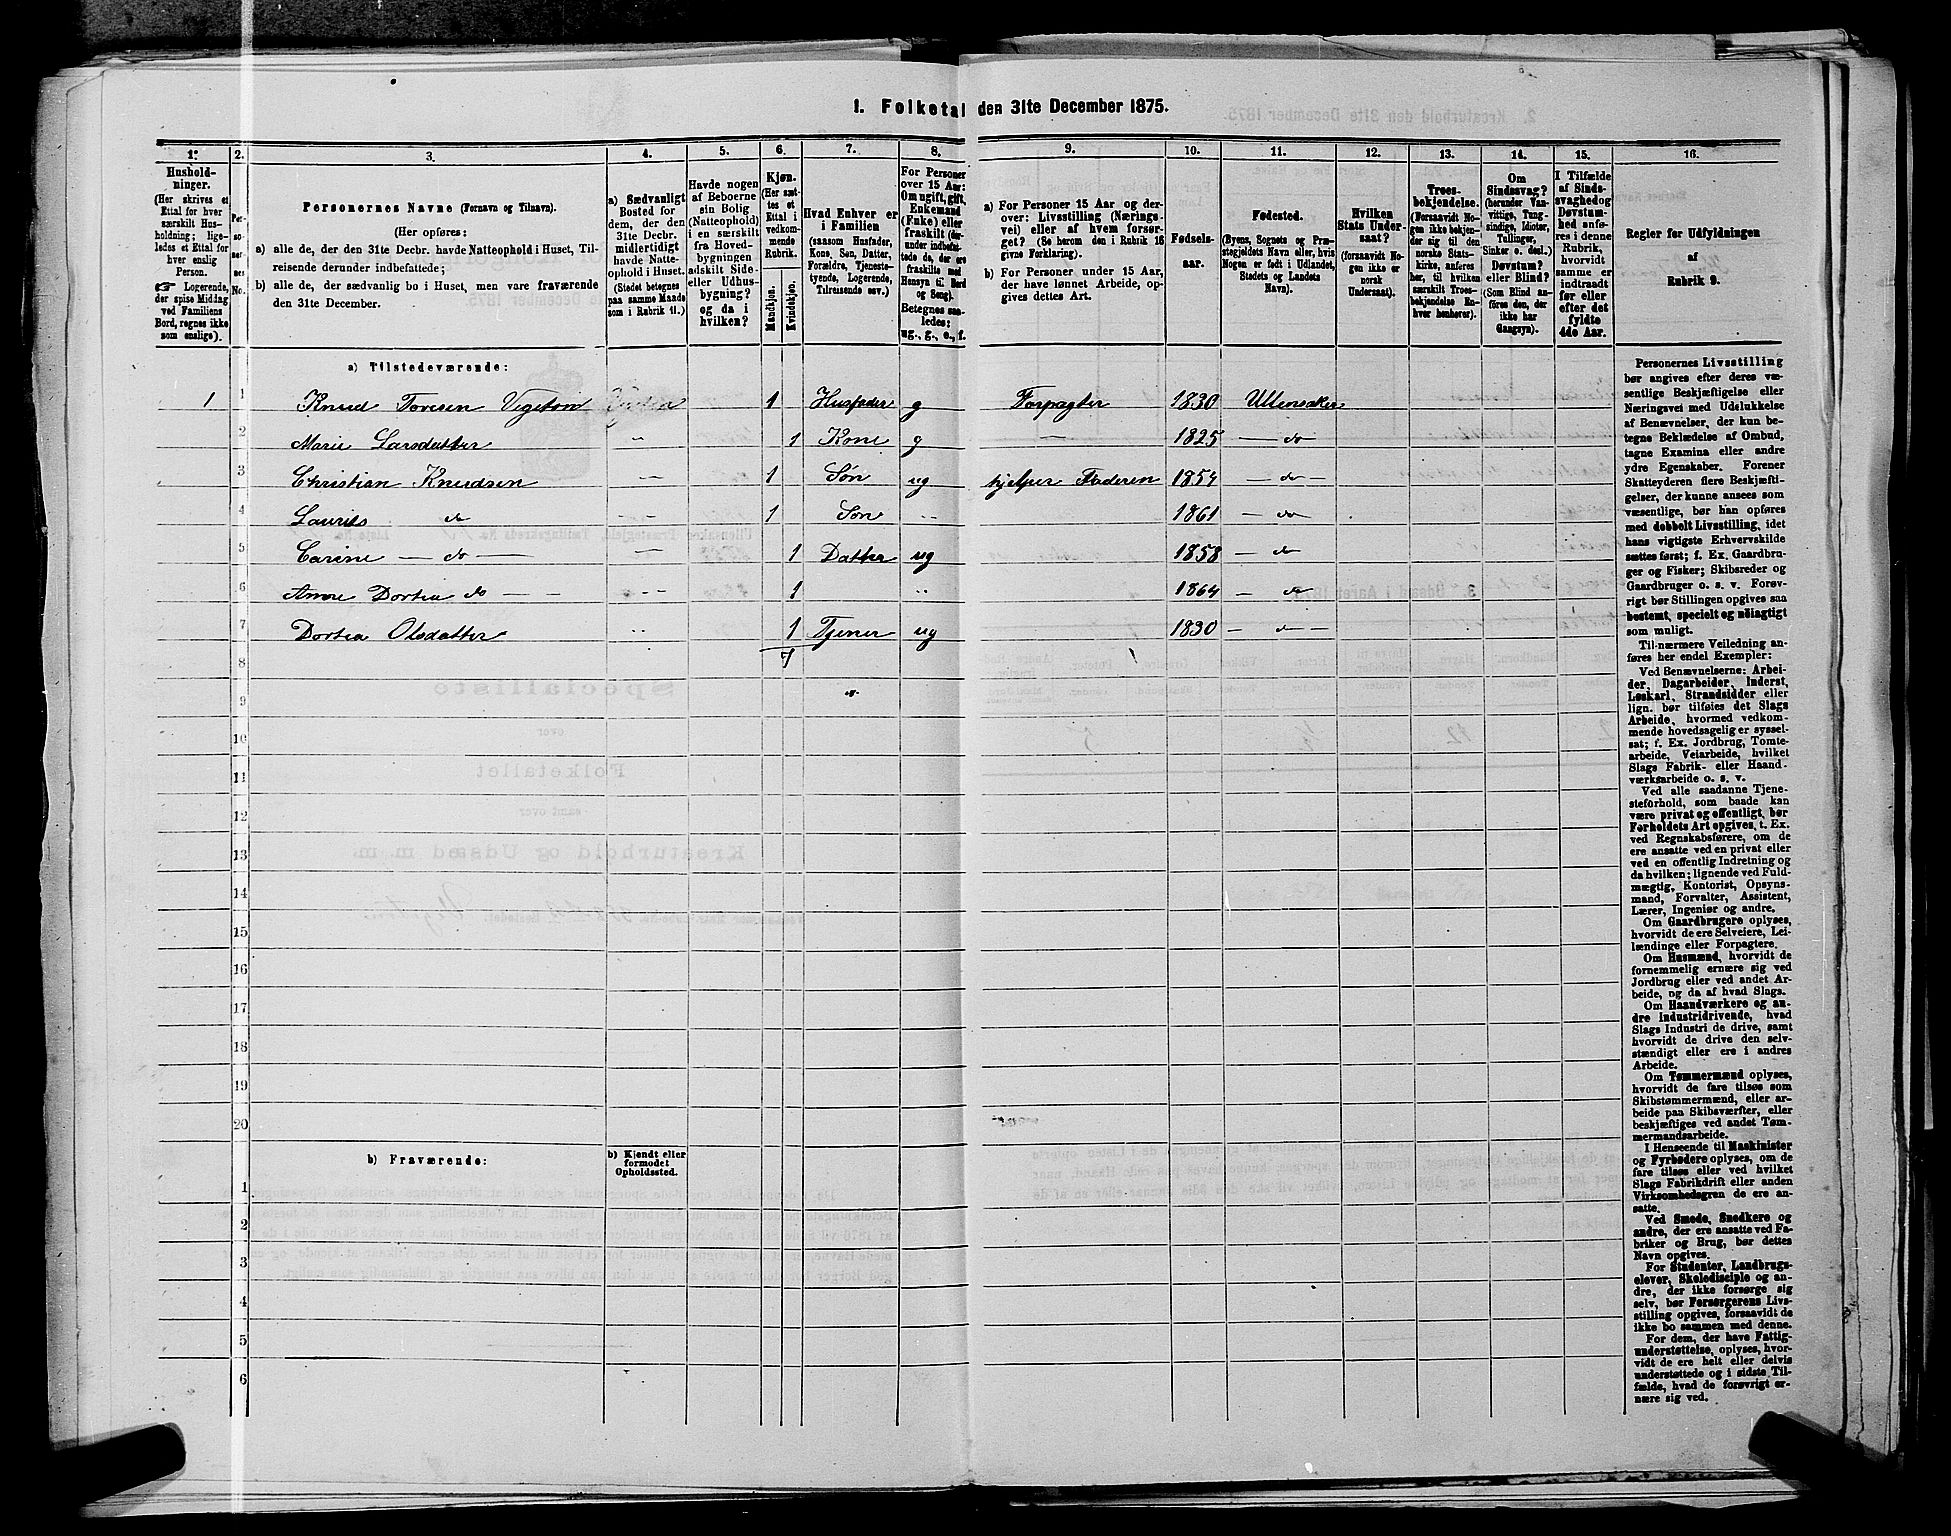 1. Folketal den 31te December 1875.
1. 2. 3. 4. 5. 6. 7. 8. 9. 10. 11. 12. 13. 14. 15. 16.
Hushold-
ninger.
(Her skrives et
Ettal for hver
særskilt Hus-
holdning; lige-
ledes et Ettal for
hver enslig
Person.
☞ Logerende,
der spise Middag
ved Familiens
Bord, regnes ikke
som enslige).
Per-
so-
ner-
nes
No.
Personernes Navne (Fornavn og Tilnavn).
(Her opføres:
a) alle de, der den 31te Decbr. havde Natteophold i Huset, Til-
reisende derunder indbefattede;
b) alle de, der sædvanlig bo i Huset, men vare fraværende
den 31te December.
a) Sædvanligt
Bosted for
dem, der den
31te Decbr.
midlertidigt
havde Natte-
ophold i Huset.
(Stedet betegnes
paa samme Maade
som i Rubrik 11.)
Havde nogen
af Beboerne
sin Bolig
(Natteophold)
i en særskilt
fra Hoved-
bygningen
adskilt Side-
eller Udhus-
bygning?
og da i
hvilken?
Kjøn.
(Her sæt-
tes et
Ettal i
vedkom-
mende
Rubrik.
Mandkjøn.
Kvindekjøn.
Hvad Enhver er
i Familien
(saasom Husfader,
Kone, Søn, Datter,
Forældre, Tjeneste-
tyende, Logerende,
Tilreisende osv.)
For Personer
over 15 Aar:
Om ugift, gift,
Enkemand
(Enke) eller
fraskilt (der-
under indbefat-
tede de, der ere
fraskilte med
Hensyn til Bord
og Seng).
Betegnes saa-
ledes:
ug., g., e., f.
a) For Personer 15 Aar og der-
over: Livsstilling (Nærings-
vei) eller af hvem forsør-
get? (Se herom den i Rubrik 16
givne Forklaring).
b) For Personer under 15 Aar,
der have lønnet Arbeide, op-
gives dettes Art.
Fødsels-
aar.
Fødested.
(Byens, Sognets og Præ-
stegjeldets Navn eller, hvis
Nogen er født i Udlandet,
Stedets og Landets
Navn).
Hvilken
Stats Under-
saat?
(forsaavidt No-
gen ikke er
norsk
Undersaat).
Troes-
bekjendelse.
(Forsaavidt No-
gen ikke bekjen-
der sig til den
norske Stats-
kirke, anføres
her, til hvilken
særskilt Troes-
bekjendelse En-
hver henhører).
Om
Sindssvag?
(herunder Van-
vittige, Tung-
sindige, Idioter,
Tullinger,
Sinker o. desl.)
Døvstum?
eller Blind?
(Som Blind an-
føres den, der
ikke har
Gangsyn).
I Tilfælde
af Sinds-
svaghed og
Døvstum-
hed anfø-
res i denne
Rubrik,
hvorvidt
samme er
indtraadt
før eller
efter det
fyldte
4de Aar.
Regler for Udfyldningen
af
Rubrik 9.
a) Tilstedeværende:
1 1 Knud Toresen Vigstein 1 Husfader g Forpagter 1830 Ullensaker
2 Marie Larsdatter 1 Kone g 1825 — do —
3 Christian Knudsen 1 Søn ug hjelper Faderen 1854 — do —
4 Laurits do 1 Søn 1861 — do
5 Carine — do — 1 Datter ug 1858 — do
6 Anne Dortea do — 1 1864 — do
7 Dortea Olsdatter 1 Tjener ug 1830 — do —
8 7
9
10
11
12
13
14
15
16
17
18
19
20
b) Fraværende:
b) Kjendt eller
formodet
Opholdssted.
1
2
3
4
5
6
Personernes Livsstilling
bør angives efter deres væ-
sentlige Beskjæftigelse eller
Næringsvei med Udelukkelse
af Benævnelser, der kun be-
tegne Beklædelse af Ombud,
tagne Examina eller andre
ydre Egenskaber. Forener
Skatteyderen flere Beskjæfti-
gelser, der kunne ansees som
væsentlige, bør han opføres
med dobbelt Livsstilling, idet
hans vigtigste Erhvervskilde
sættes først; f. Ex. Gaardbru-
ger og Fisker; Skibsreder og
Gaardbruger o. s. v. Forøv-
rigt bør Stillingen opgives saa
bestemt, specielt og nøiagtigt
som muligt.
Til nærmere Veiledning an-
føres her endel Exempler:
Ved Benævnelserne: Arbei-
der, Dagarbeider, Inderst,
Løskarl, Strandsidder eller
lign. bør tilføies det Slags
Arbeide, hvormed vedkom-
mende hovedsagelig er syssel-
sat; f. Ex. Jordbrug, Tomte-
arbeide, Veiarbeide, hvilket
Slags Fabrik- eller Haand-
værksarbeide o. s. v.
Ved alle saadanne Tjene-
steforhold, som baade kan
være privat og offentligt, bør
Forholdets Art opgives, t. Ex.
ved Regnskabsførere, om de
ere ansatte ved en privat eller
ved en offentlig Indretning og
da hvilken; lignende ved Fuld-
mægtig, Kontorist, Opsyns-
mand, Forvalter, Assistent,
Lærer, Ingeniør og andre.
Om Gaardbrugere oplyses,
hvorvidt de ere Selveiere, Lei-
lændinge eller Forpagtere.
Om Husmænd, hvorvidt de
fornemmelig ernære sig ved
Jordbrug eller ved andet Ar-
beide, og da af hvad Slags.
Om Haandværkere og an-
dre Industridrivende, hvad
Slags Industri de drive, samt
hvorvidt de drive den selv-
stændigt eller ere i andres
Arbeide.
Om Tømmermænd oplyses,
hvorvidt de fare tilsøs som
Skibstømmermænd, eller ar-
beide paa Skibsværfter, eller
beskjæftiges ved andet Tøm-
mermandsarbeide.
I Henseende til Maskinister
og Fyrbødere oplyses, om de
fare tilsøs eller ved hvilket
Slags Fabrikdrift eller anden
Virksomhedsgren de ere an-
satte.
Ved Smede, Snedkere og
andre, der ere ansatte ved Fa-
briker og Brug, bør dettes
Navn opgives.
For Studenter, Landbrugs-
elever, Skoledisciple og an-
dre, der ikke forsørge sig
selv, bør Forsørgerens Livs-
stilling opgives, forsaavidt de
ikke bo sammen med denne.
For dem, der have Fattig-
understøttelse, oplyses, hvor-
vidt de ere helt eller delvis
understøttede og i sidste Til-
fælde, hvad de forøvrigt er-
nære sig ved.